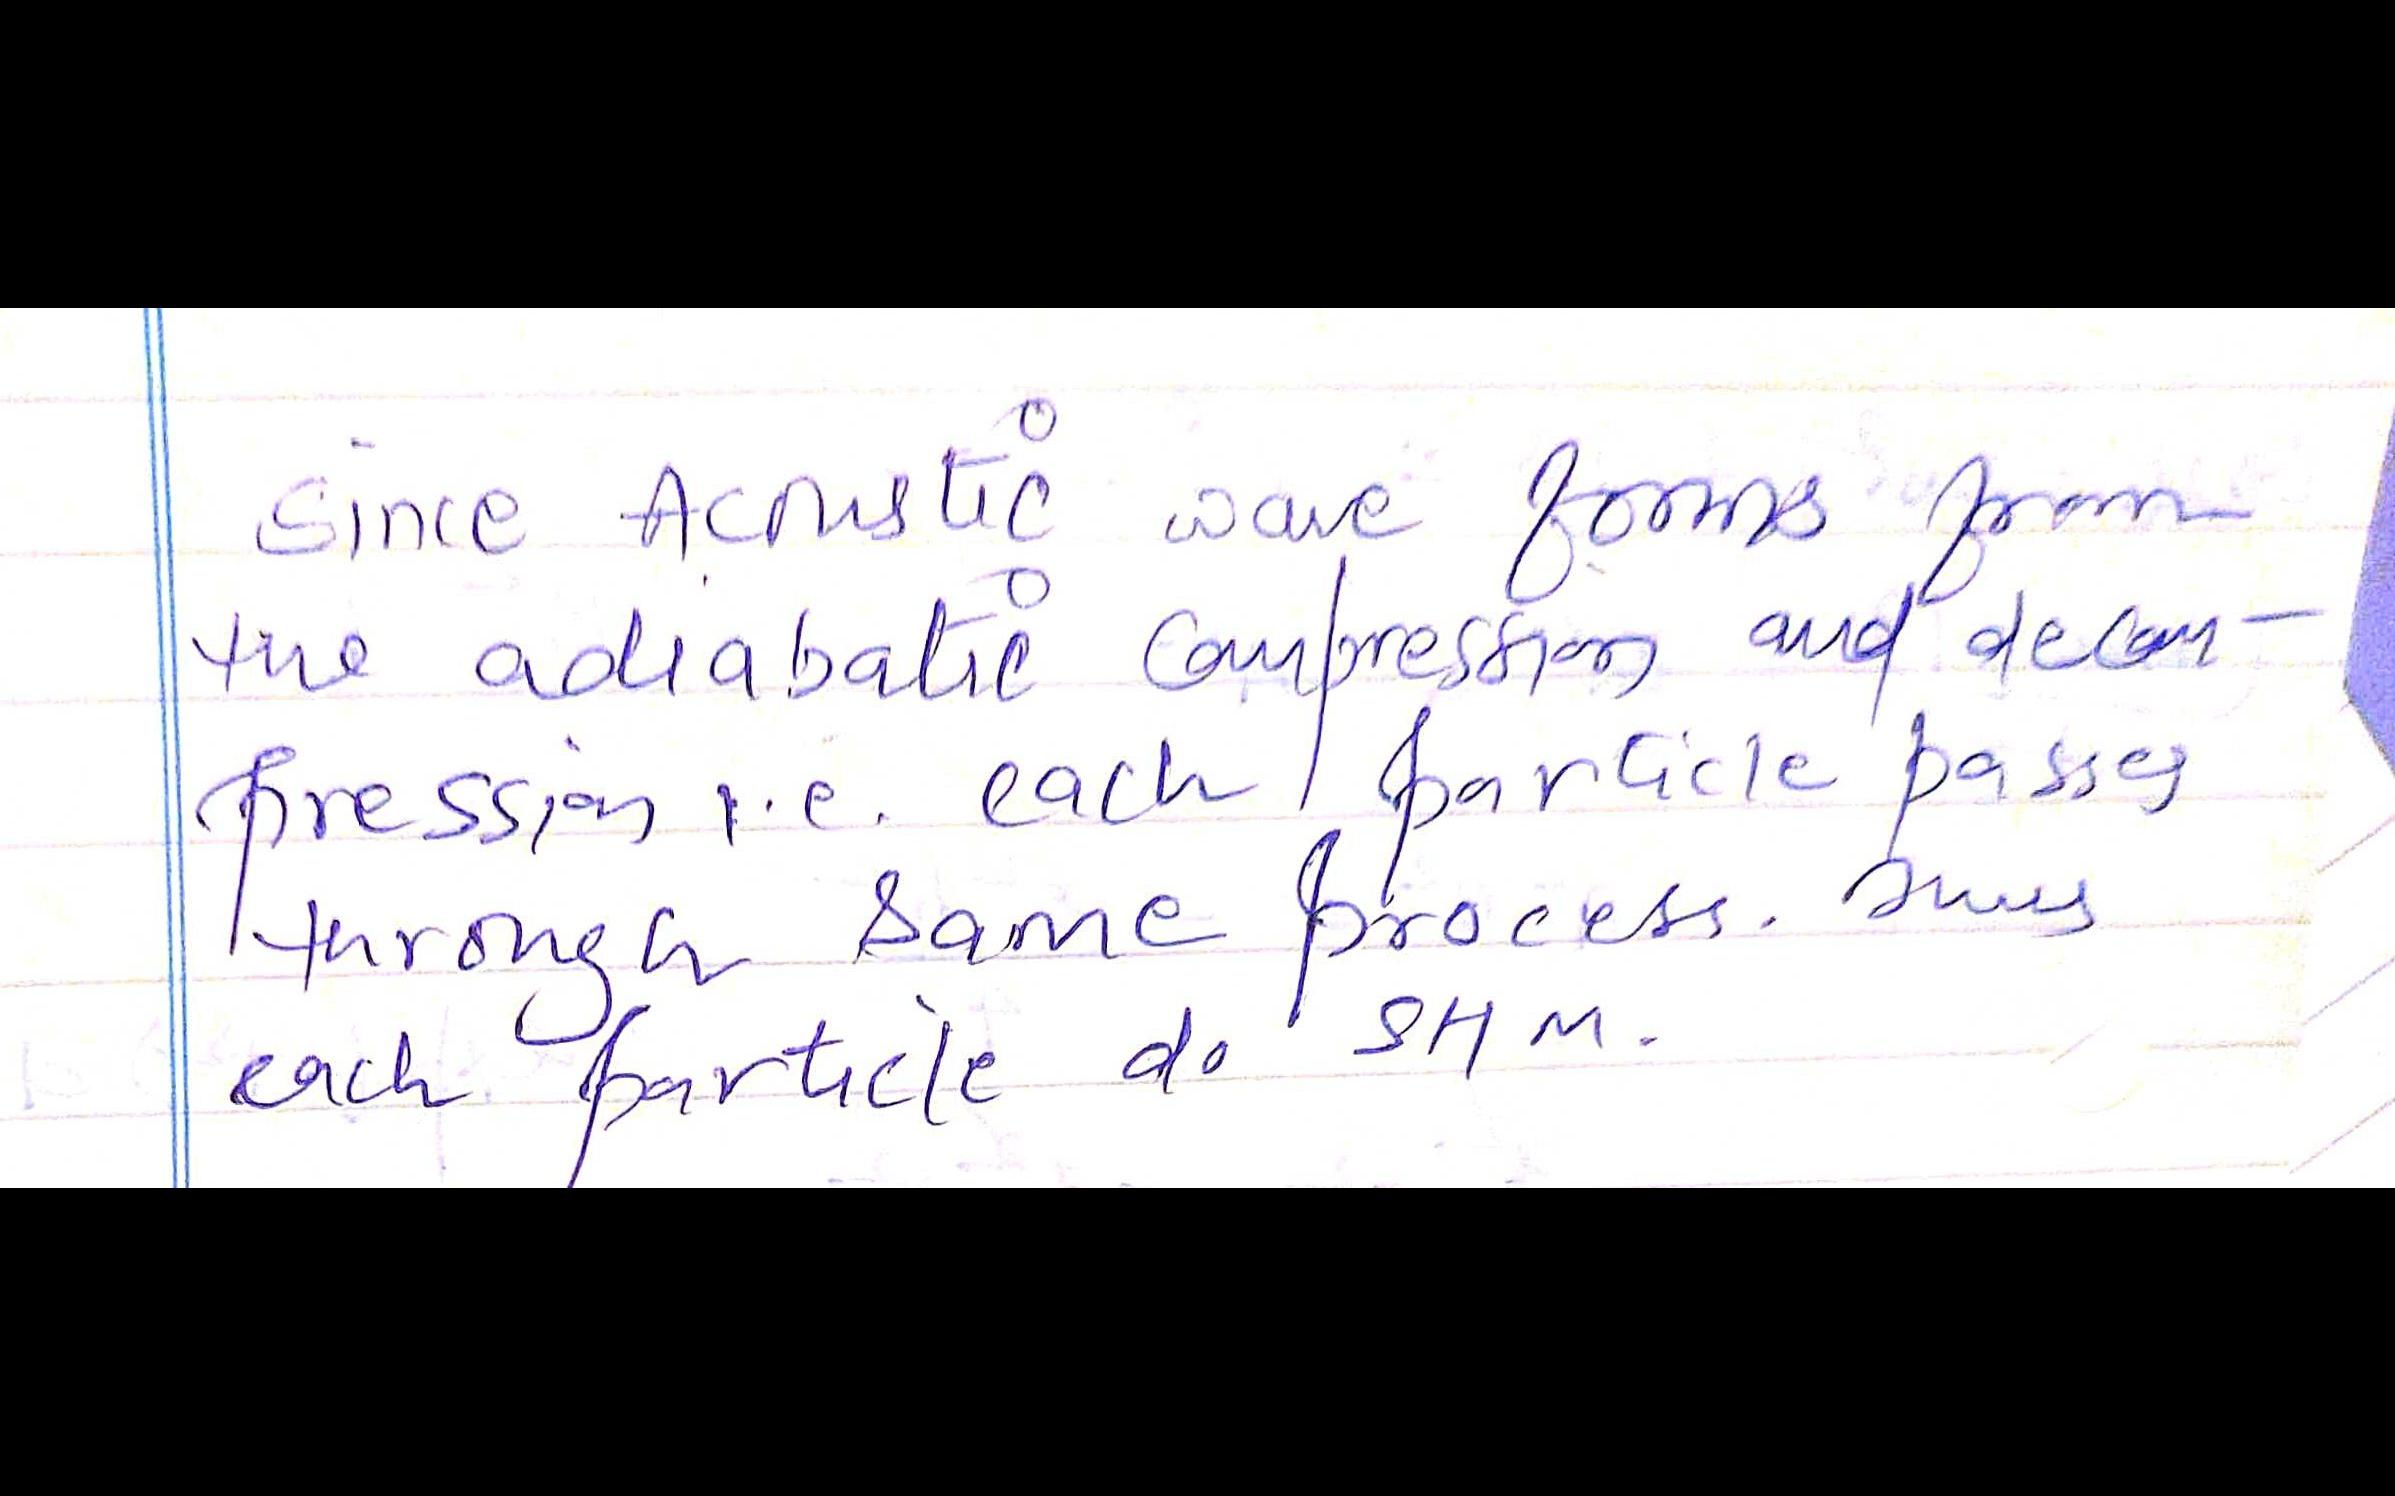 Since Acoustic wave forms from
the adiabatic compression and decom-
pression i.e. each particle passes
through same process. Thus
each particle do SHM.